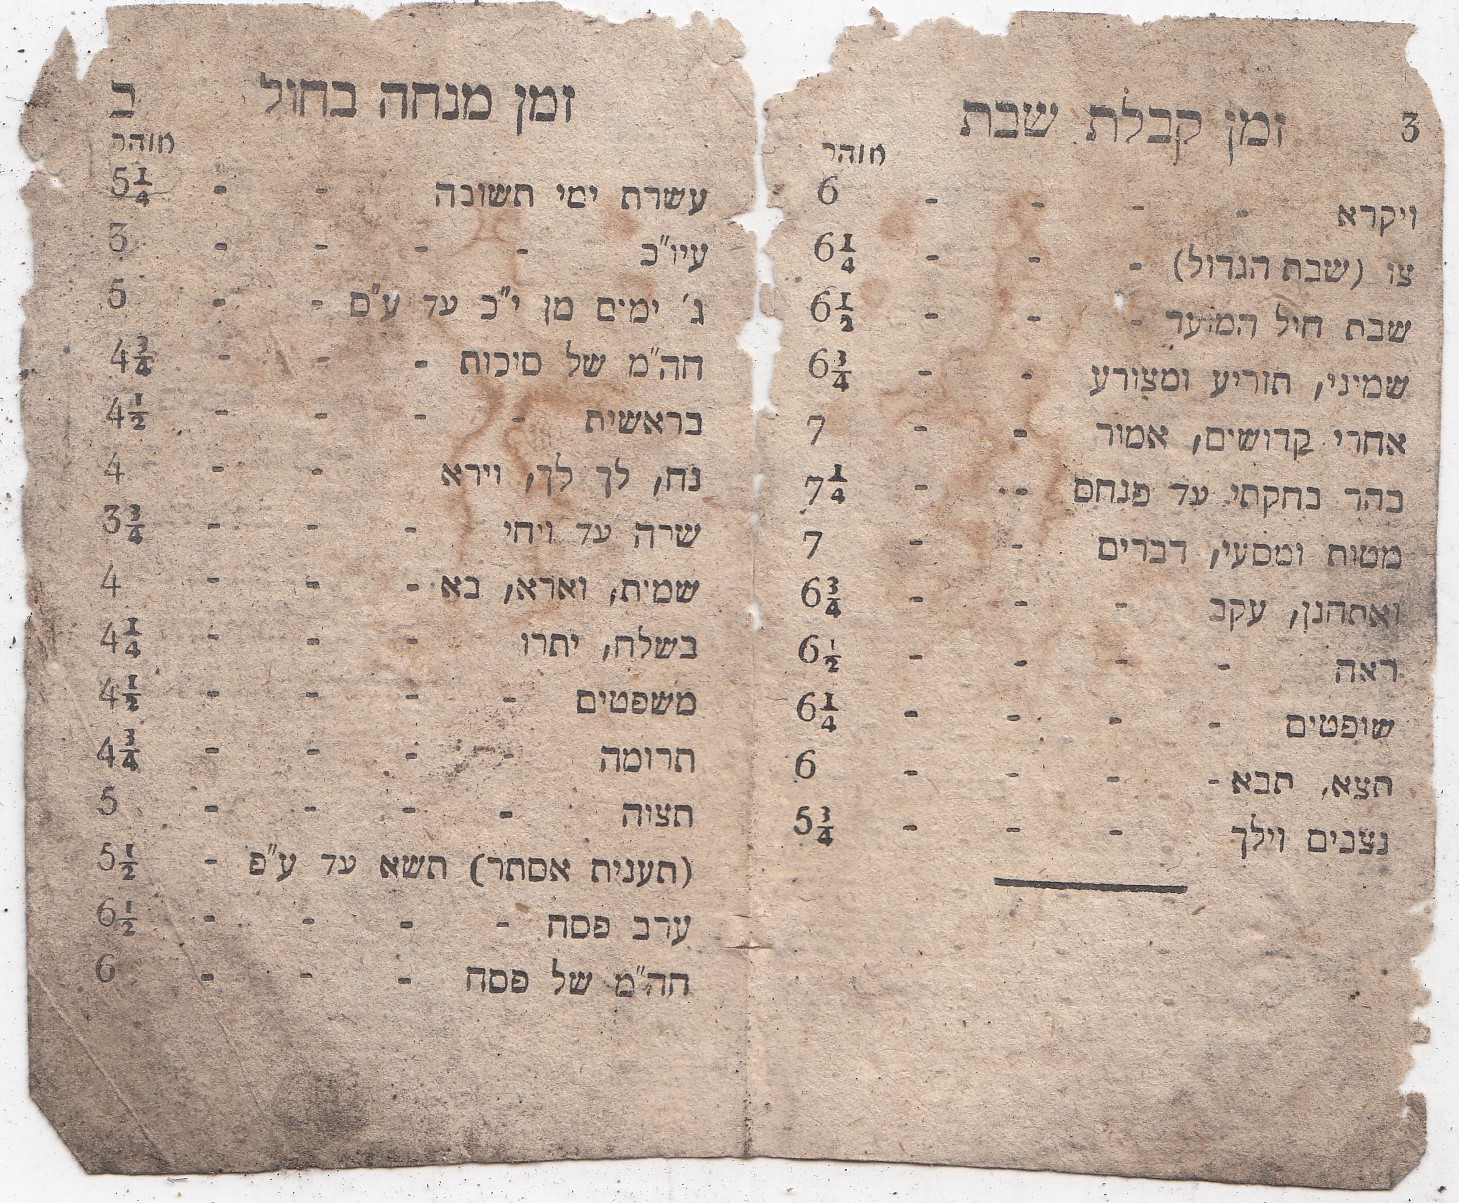 3 זמן קבלת שבת
אוהר
ויקרא - - - - 6
צו (שבת הגדול) - - - 6¼
שבת חול המועד - - - 6½
שמיני, תזריע ומצורע - - 6¾
אחרי קדושים, אמור - - 7
בהר בחקתי עד פנחס - - 7¼
מטות ומסעי, דברים - - 7
ואתחנן, עקב - - - 6¾
ראה - - - - 6½
שופטים - - - - 6¼
תצא, תבא - - - - 6
נצבים וילך - - - 5¾
זמן מנחה בחול ב
אוהר
עשרת ימי תשובה - - 5¼
עיו"כ - - - - 3
ג' ימים מן י"כ עד ע"ס - - 5
חה"מ של סוכות - - - 4¾
בראשית - - - - 4½
נח, לך לך, וירא - - 4
שרה עד ויחי - - - 3¾
שמות, וארא, בא - - - 4
בשלח, יתרו - - - 4¼
משפטים - - - - 4½
תרומה - - - - 4¾
תצוה - - - - 5
(תענית אסתר) תשא עד ע"פ - 5½
ערב פסח - - - - 6½
חה"מ של פסח - - - 6